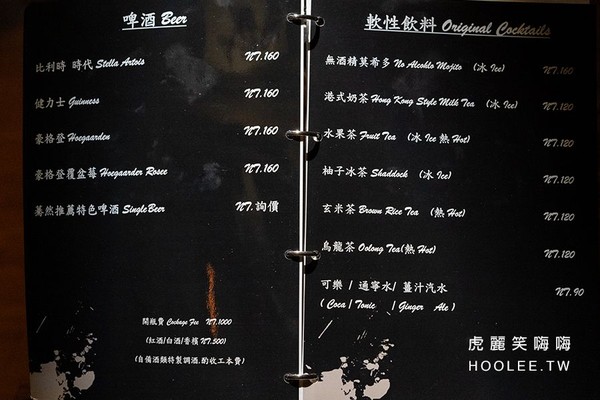 啤酒 Beer
比利時 時代 Stella Artois NT.160
健力士 Guinness NT.160
豪格登 Hoegaarden NT.160
豪格登覆盆莓 Hoegaarder Rosee NT.160
蕎然推薦特色啤酒 SingleBeer NT.詢價
開瓶費 Cockage Fee NT.1000
(紅酒/白酒/香檳 NT.500)
(自備酒類特製調酒.酌收工本費)
軟性飲料 Original Cocktails
無酒精莫希多 No Alcohlo Mojito (冰 Ice) NT.160
港式奶茶 Hong Kong Style Milk Tea (冰 Ice) NT.120
水果茶 Fruit Tea (冰 Ice 熱 Hot) NT.120
柚子冰茶 Shaddock (冰 Ice) NT.120
玄米茶 Brown Rice Tea (熱 Hot) NT.120
烏龍茶 Oolong Tea(熱 Hot) NT.120
可樂 / 通寧水/ 薑汁汽水 NT.90
( Coca | Tonic | Ginger Ale )
虎麗笑嗨嗨
HOOLEE.TW